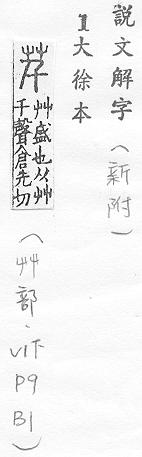 説文解字（新附）
1大徐本
芊
艸盛也从艸
千聲倉先切
（艸部、VI下
P9
B1）